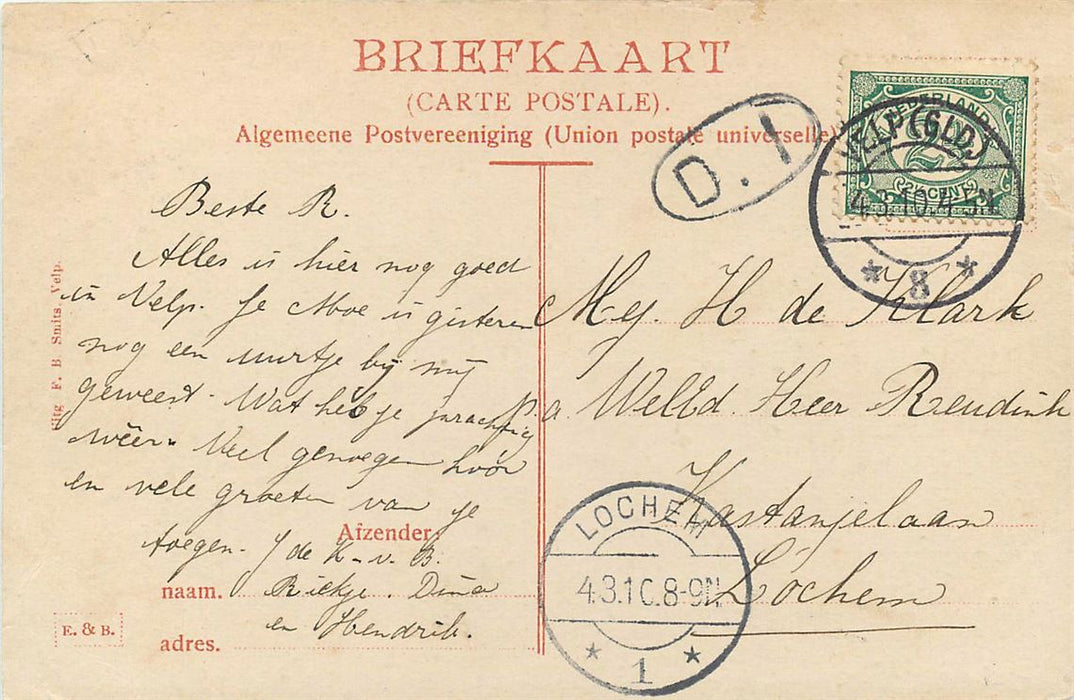 BRIEFKAART
(CARTE POSTALE).
Algemeene Postvereeniging (Union postale universelle)
D. I
NEDERLAND
2½
2½ CENT
VELP (GLD.)
4.3.10.4-5N
* 8 *
Beste R.
Alles is hier nog goed
in Velp. Je Moe is gisteren
nog een uurtje bij mij
geweest. Wat heb je prachtig
wêer. Veel genoegen hoor
en vele groeten van je
toegen. J de K-v. B.
Riekje. Dina
en Hendrik.
Afzender:
naam.
adres.
Mej. H de Klark
P. a WelEd Heer Reudink
Kastanjelaan
Lochem
LOCHEM
4.3.10.8-9N
* 1 *
Uitg F. B. Smits, Velp.
E. & B.